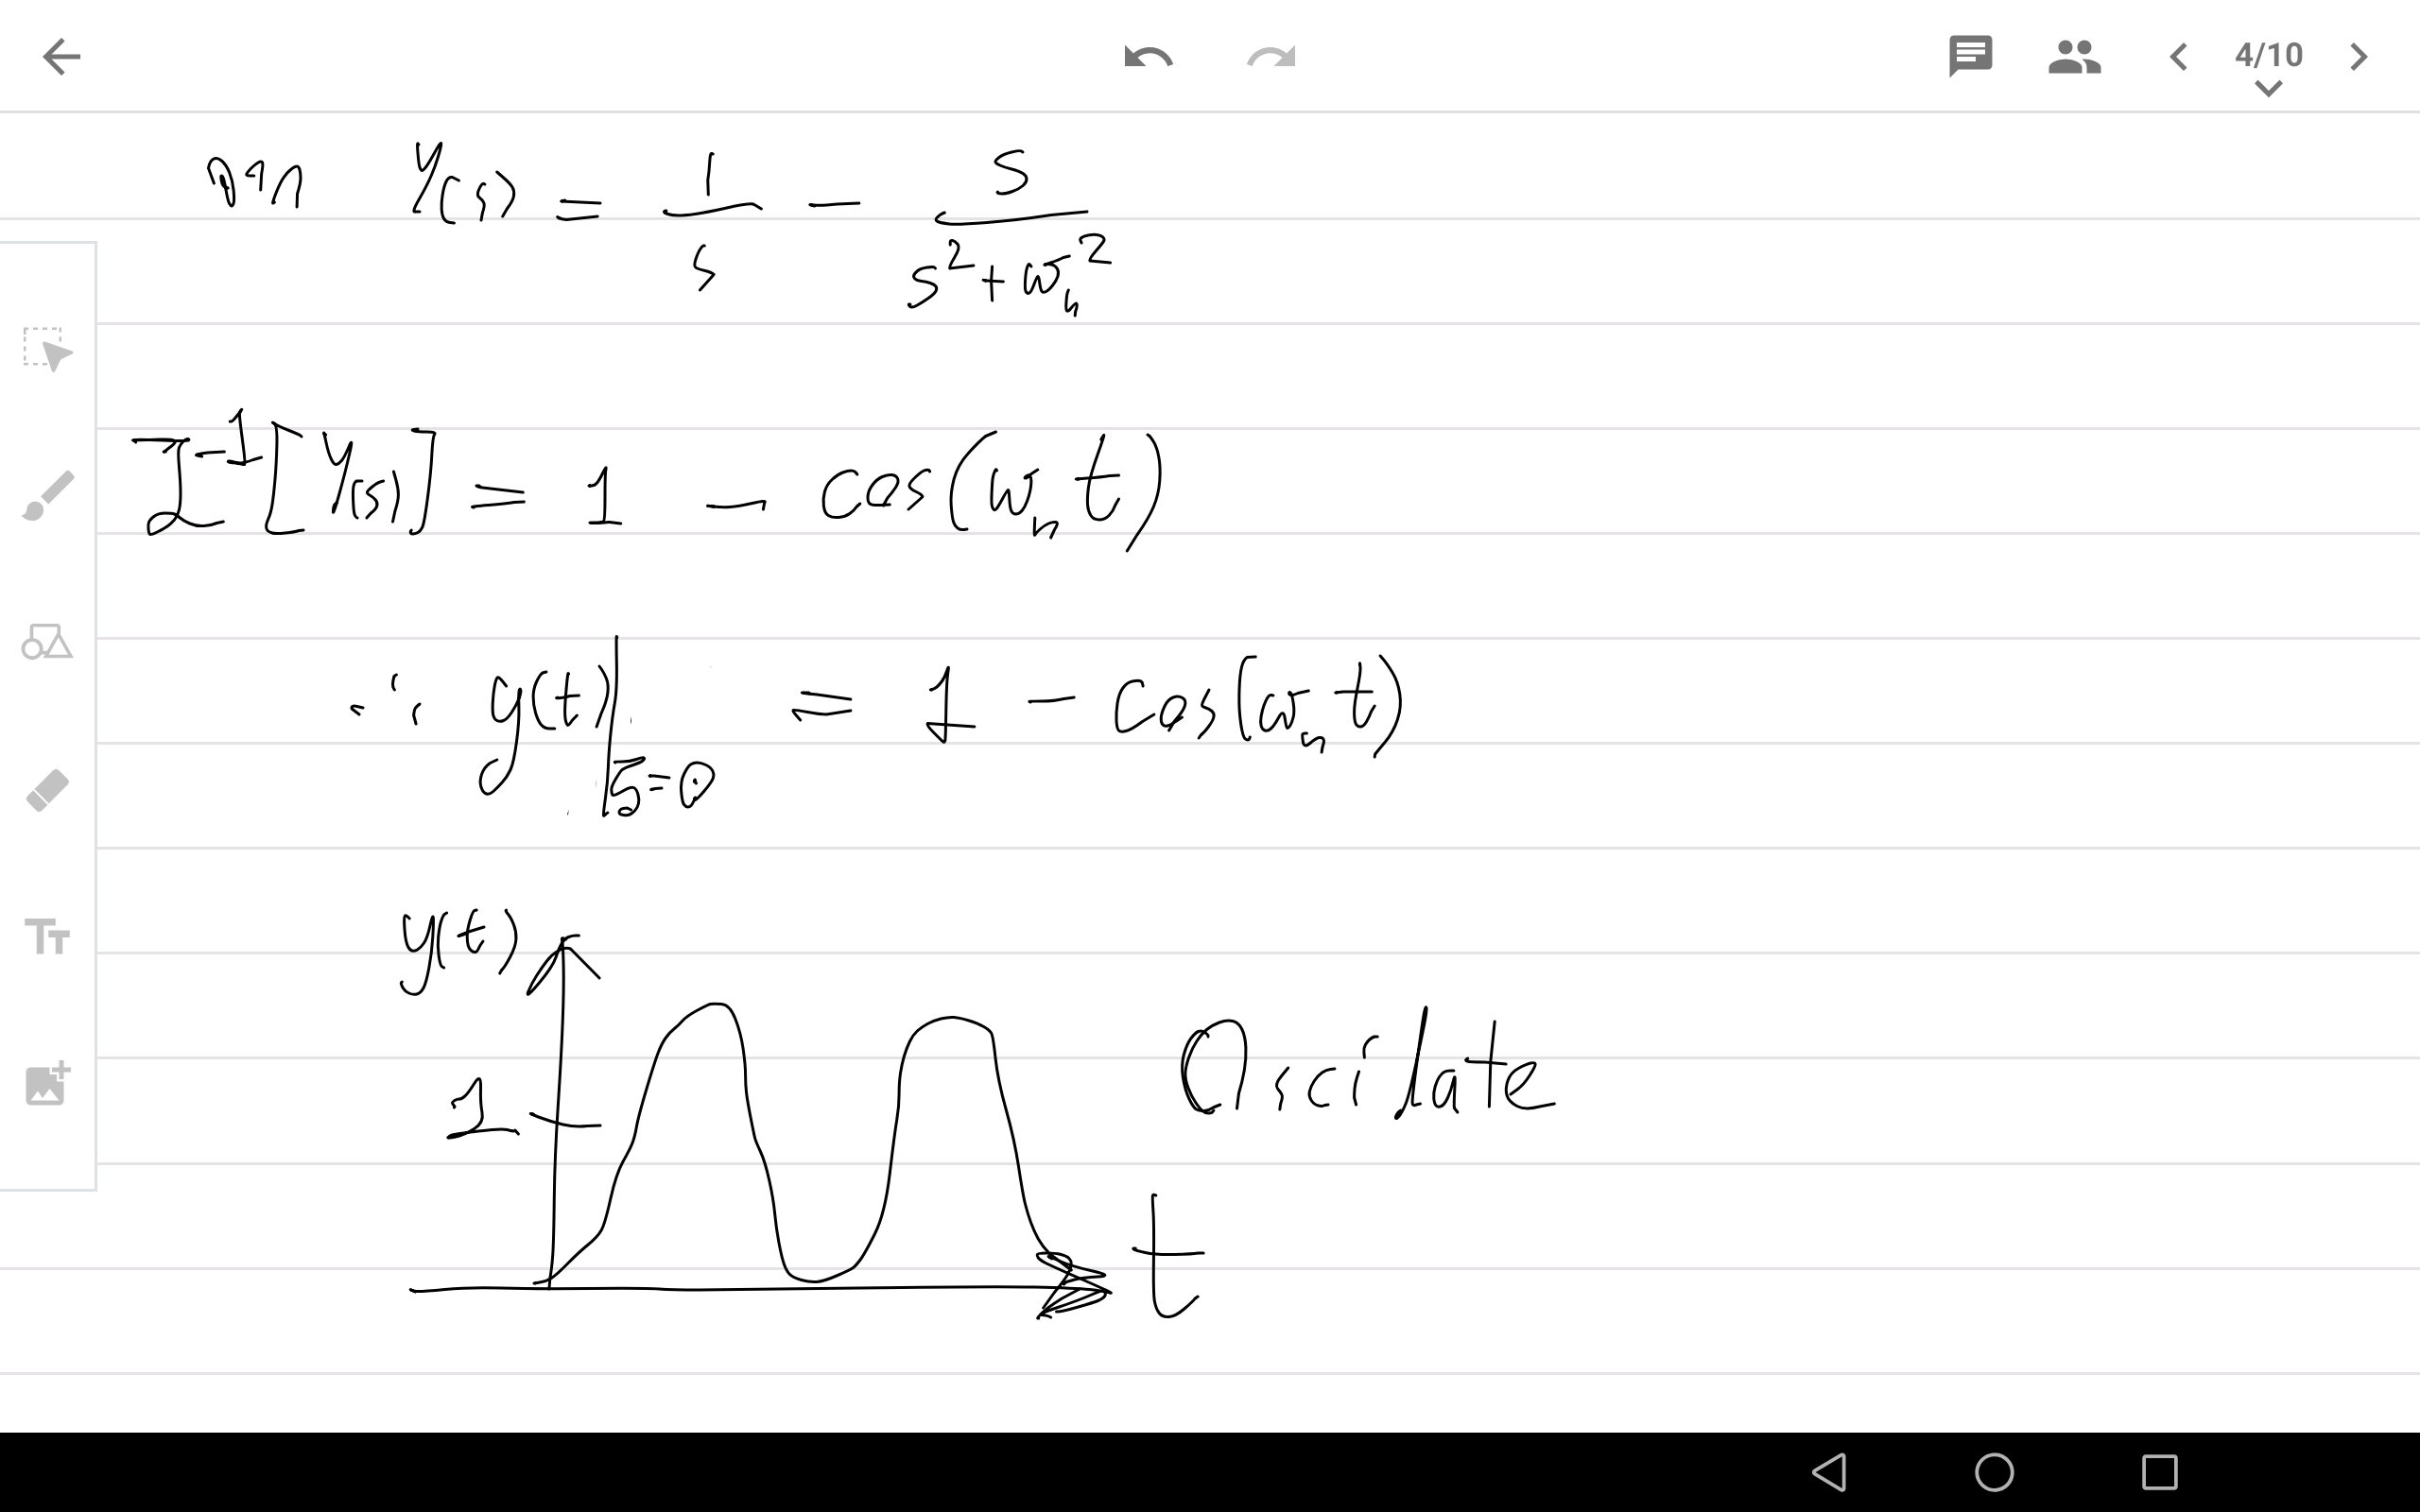 4/10
จาก Y(s) = 1/s - s/(s²+ωn²)
ℒ⁻¹[Y(s)] = 1 - cos(ωn t)
∴ y(t)|ζ=0 = 1 - cos(ωn t)
y(t)
1
Oscilate
t